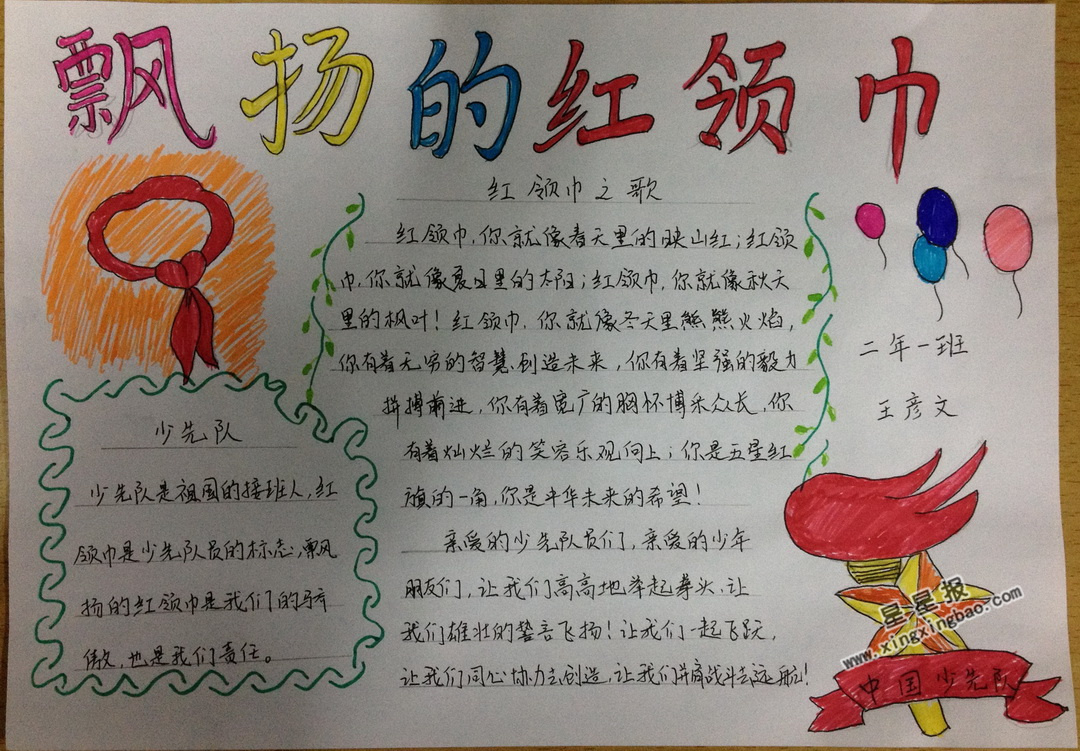 飘扬的红领巾
红领巾之歌
红领巾,你就像春天里的映山红;红领
巾,你就像夏日里的太阳;红领巾,你就像秋天
里的枫叶!红领巾,你就像冬天里熊熊火焰,
你有着无穷的智慧创造未来,你有着坚强的毅力
拼搏前进,你有着宽广的胸怀博采众长,你
有着灿烂的笑容乐观向上;你是五星红
旗的一角,你是中华未来的希望!
亲爱的少先队员们,亲爱的少年
朋友们,让我们高高地举起拳头,让
我们雄壮的誓言飞扬!让我们一起飞跃,
让我们同心协力去创造,让我们拼搏战斗去远航!
少先队
少先队是祖国的接班人,红
领巾是少先队员的标志,飘
扬的红领巾是我们的骄
傲,也是我们责任。
二年一班
王彦文
星星报
www.xingxingbao.com
中国少先队